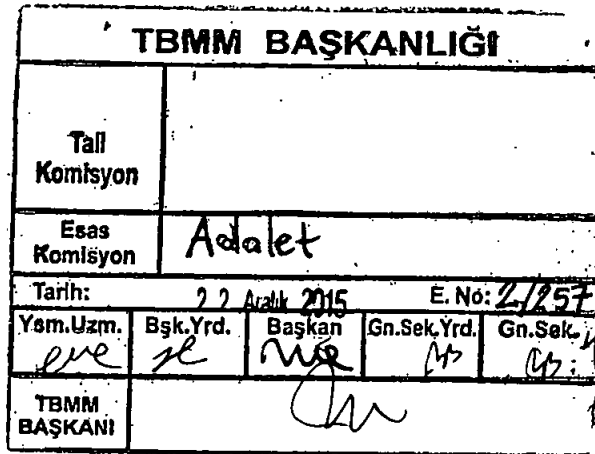 TBMM BAŞKANLIĞI
Tali
Komisyon
Esas
Komisyon
Adalet
Tarih: 22 Aralık 2015 E. No: 2/257
Ysm.Uzm. Bşk.Yrd. Başkan Gn.Sek.Yrd. Gn.Sek.
TBMM
BAŞKANI